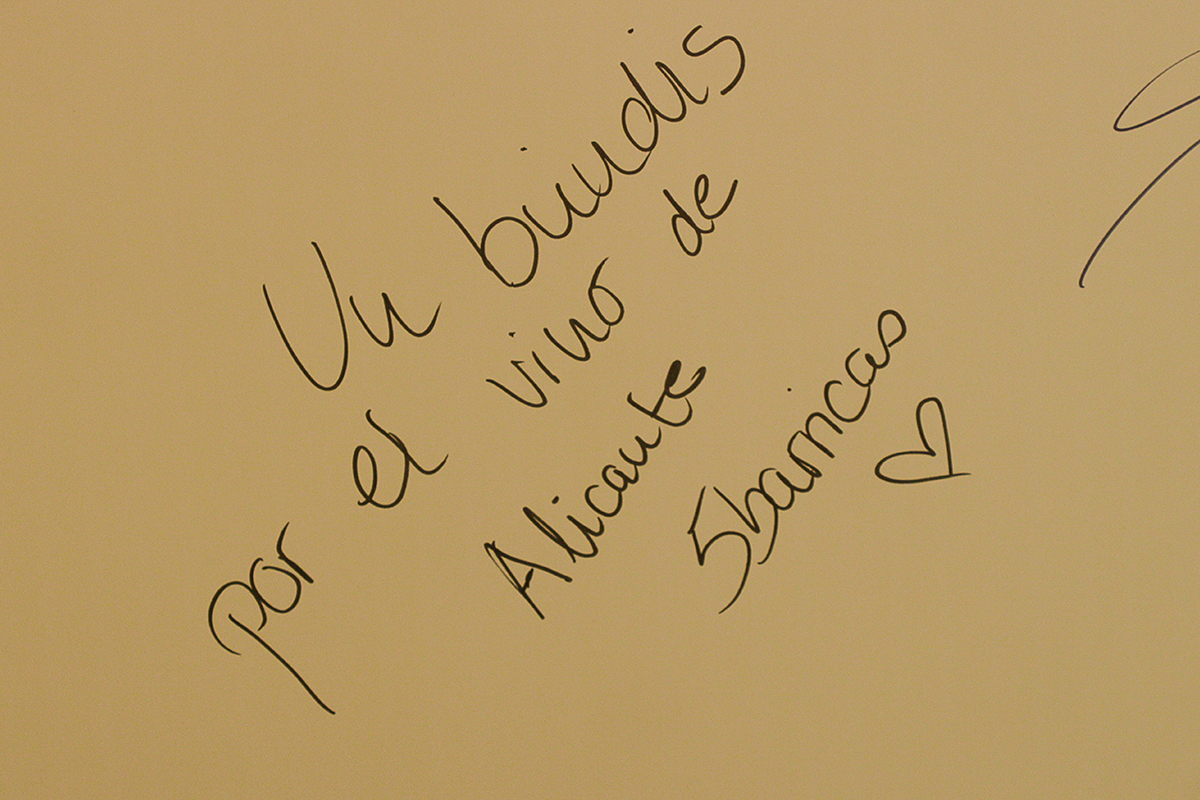 Un brindis
por el vino de
Alicante
5barricas